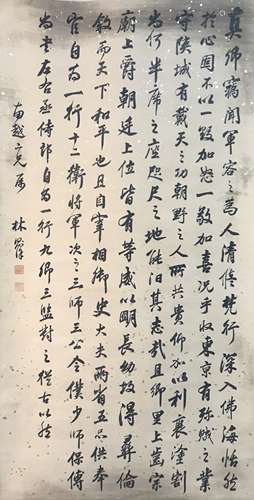 真卿竊聞軍容之為人清修梵行深入佛海怡然
於心固不以一毀加怒一敬加喜況乎收東京有殄賊之業
守陝城有戴天之功朝野之人所共貴仰加以利衰塗割
尚何半席之座咫尺之地能汩其志哉且鄉里上齒宗
廟上爵朝廷上位皆有等威以明長幼故得彝倫
敘而天下和平也且自宰相御史大夫兩省五品供奉
官自為一行十二衛將軍次之三師三公令僕少師保傅
尚書左右丞侍郎自為一行九卿三監對之從古以然
二兄屬
林則徐